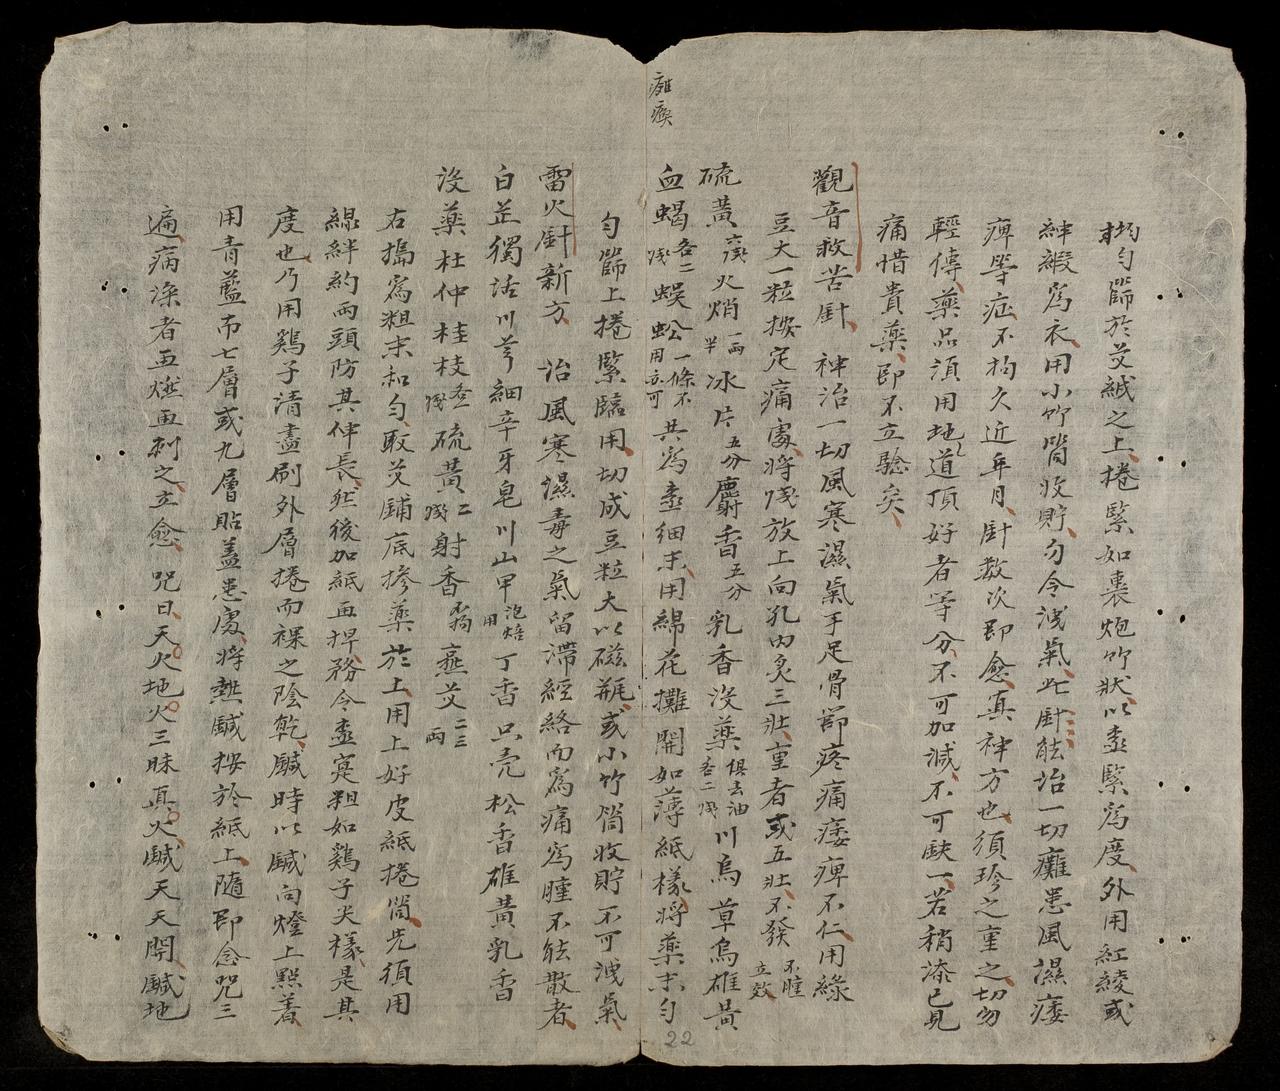 㨂匀篩於艾絨之上、捲緊如裹炮竹狀、以壺緊爲度、外用紅綾或
紳緞爲衣、用小竹筒收貯、勿令洩氣、此針能治一切癱患風濕痿
痺等症、不拘久近年月、針数次即愈、真神方也、須珍之重之、切勿
輕傳、藥品須用地道頂好者等分、不可加減、不可缺一、若稍添已見
痛惜貴藥、即不立驗矣、
觀音救苦針 神治一切風寒濕氣手足骨節疼痛痿痺不仁、用綠
豆大一粒按定痛處、將火放上向孔内灸三壯、重者或五壯、不發 不腫立效
硫黃 火焇一両半 冰片五分 麝香五分 乳香沒藥俱去油各二戔 川烏草烏雄黃
血蝎各二戔 蜈蚣一條不用亦可 共爲壺細末、用綿花攤開如薄紙樣、將藥末勻
癱瘓
勻篩上捲緊、臨用切成豆粒大、以磁瓶、或小竹筒收貯、不可洩氣、
雷火針新方 治風寒濕毒之氣留滯經絡而爲痛爲腫不能散者、
白芷獨活川芎細辛牙皂川山甲泡焙用 丁香只壳松香雄黃乳香
沒藥杜仲桂枝各戔 硫黃二戔 射香 薰艾二三両
右搗爲粗末和勻、取艾鋪底掺藥於上、用上好皮紙捲筒、先須用
線絆約兩頭防其伸長、然後加紙再捍、務令壺寔粗如鷄子大樣、是其
度也、乃用鷄子清盡刷外層捲而裸之陰乾、鍼時以鍼向燈上點着、
用青藍布七層或九層貼蓋患處、將熱鍼按於紙上、隨即念咒三
遍、病深者再燃再刺之、立愈、咒曰、天火地火三昧真火、鍼天天開、鍼地
22